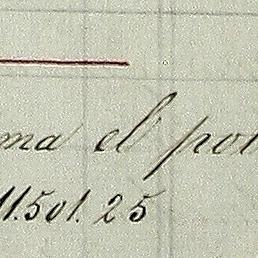 ma el por
11.501.25